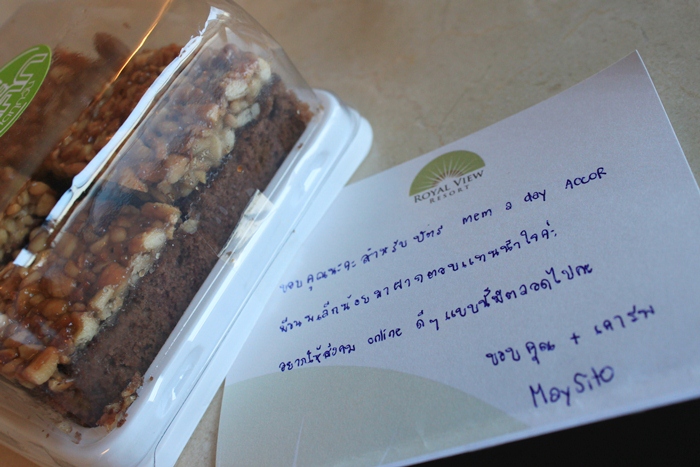 ROYAL VIEW
RESORT
ขอบคุณนะคะ สำหรับบัตร mem a day ACCOR
มีขนมเล็กน้อยมาฝากตอบแทนน้ำใจค่ะ
อยากให้สังคม online ดีๆ แบบนี้มีตลอดไปคะ
ขอบคุณ + เคารพ
MaySito